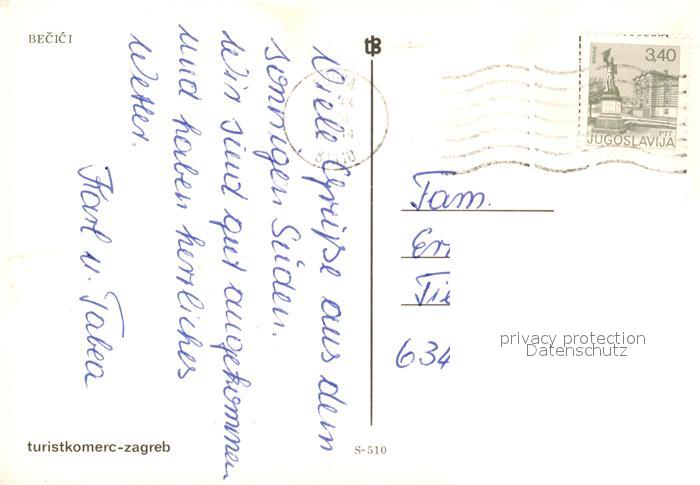 BEČIĆI
Viele Grüße aus dem
sonnigen Süden.
Wir sind gut angekommen
und haben herrliches
Wetter.
Karl u. Tabea
turistkomerc-zagreb
S-510
3,40
PTT
JUGOSLAVIJA
Fam.
634
privacy protection
Datenschutz